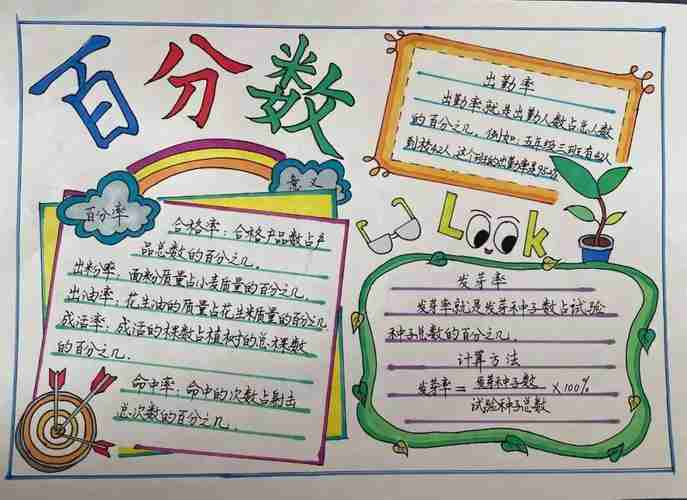 百分数
百分率
意义
合格率：合格产品数占产
品总数的百分之几.
出粉率：面粉质量占小麦质量的百分之几.
出油率：花生油的质量占花生米质量的百分之几
成活率：成活的棵数占植树的总棵数
的百分之几.
命中率：命中的次数占射击
总次数的百分之几.
出勤率
出勤率就是出勤人数占总人数
的百分之几. 例如：五年级三班有
到校42人. 这个班的出勤率是
Look
发芽率
发芽率就是发芽种子数占试验
种子总数的百分之几.
计算方法
发芽率 = 发芽种子数 × 100%
试验种子总数